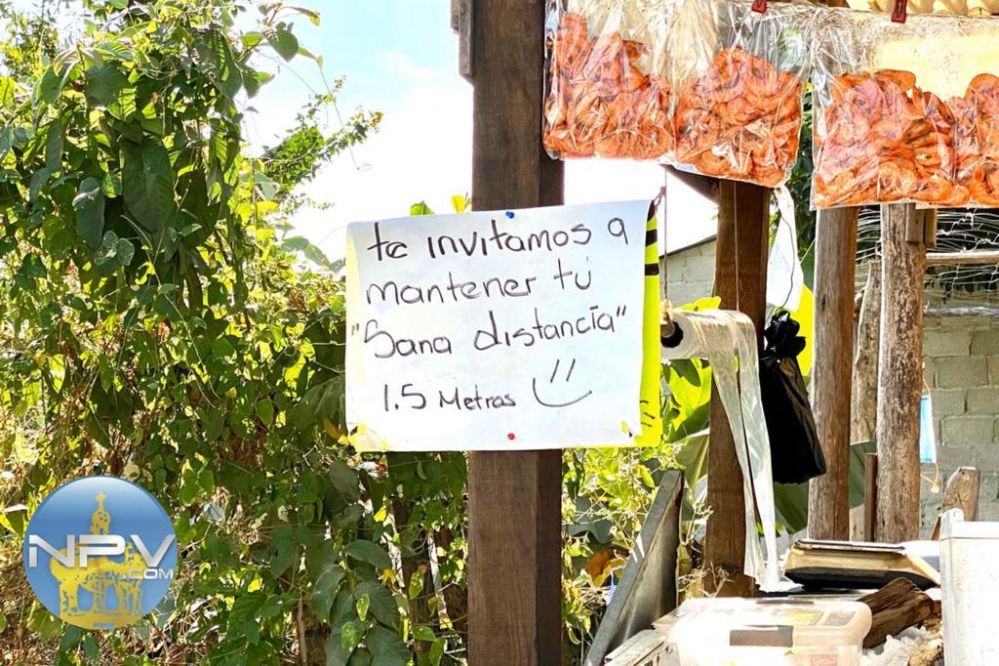 te invitamos a
mantener tú
"Sana distancia"
1.5 Metros
NPV
.COM